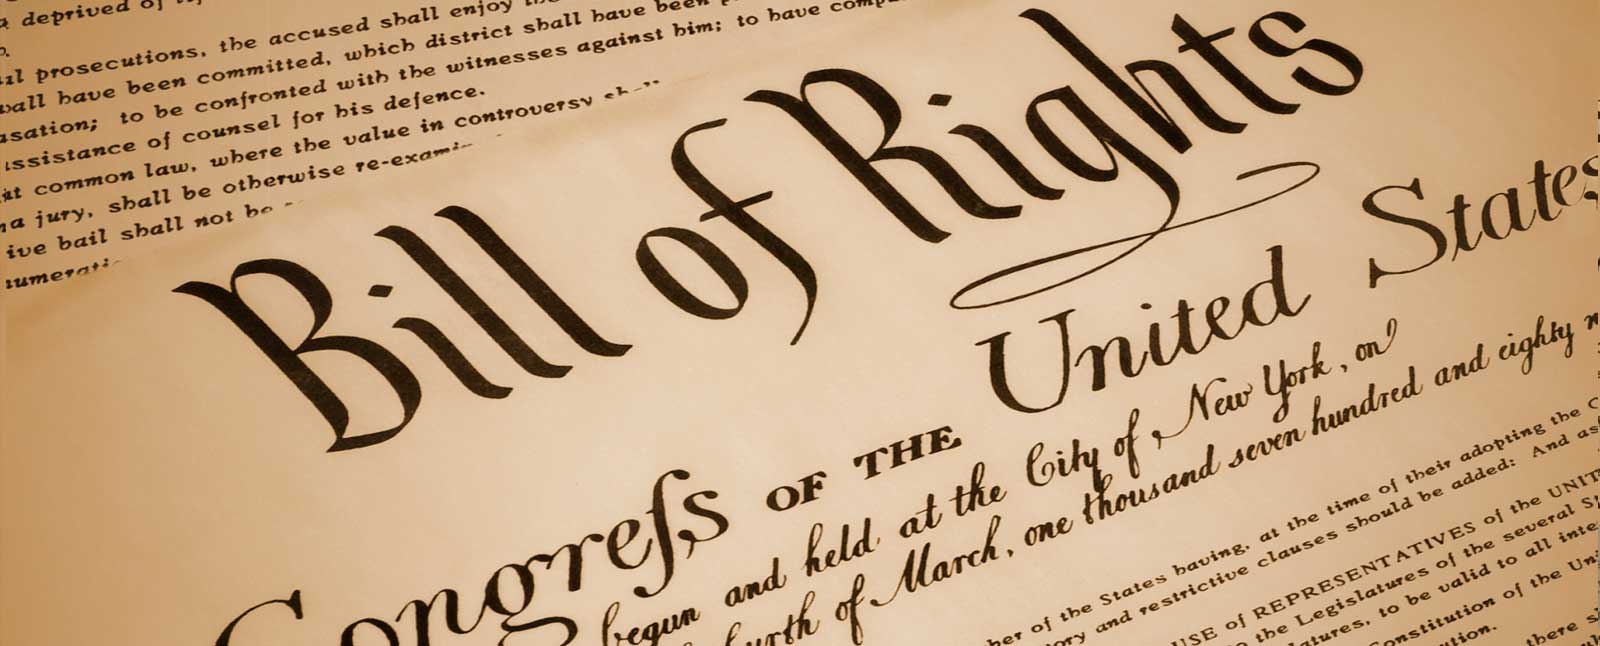 deprived of
prosecutions, the accused shall enjoy
have been committed, which district shall have been
to be confronted with the witnesses against him; to have
of counsel for his defence.
common law, where the value in controversy
a jury, shall be otherwise
bail shall not be
Bill of Rights
Congreſs OF THE United States
begun and held at the City of New York, on
of March, one thousand seven hundred and eighty
of the States having, at the time of their adopting the
and restrictive clauses should be added: And
of REPRESENTATIVES of the
the Legislatures of the several
to be valid to all
Constitution of the
there